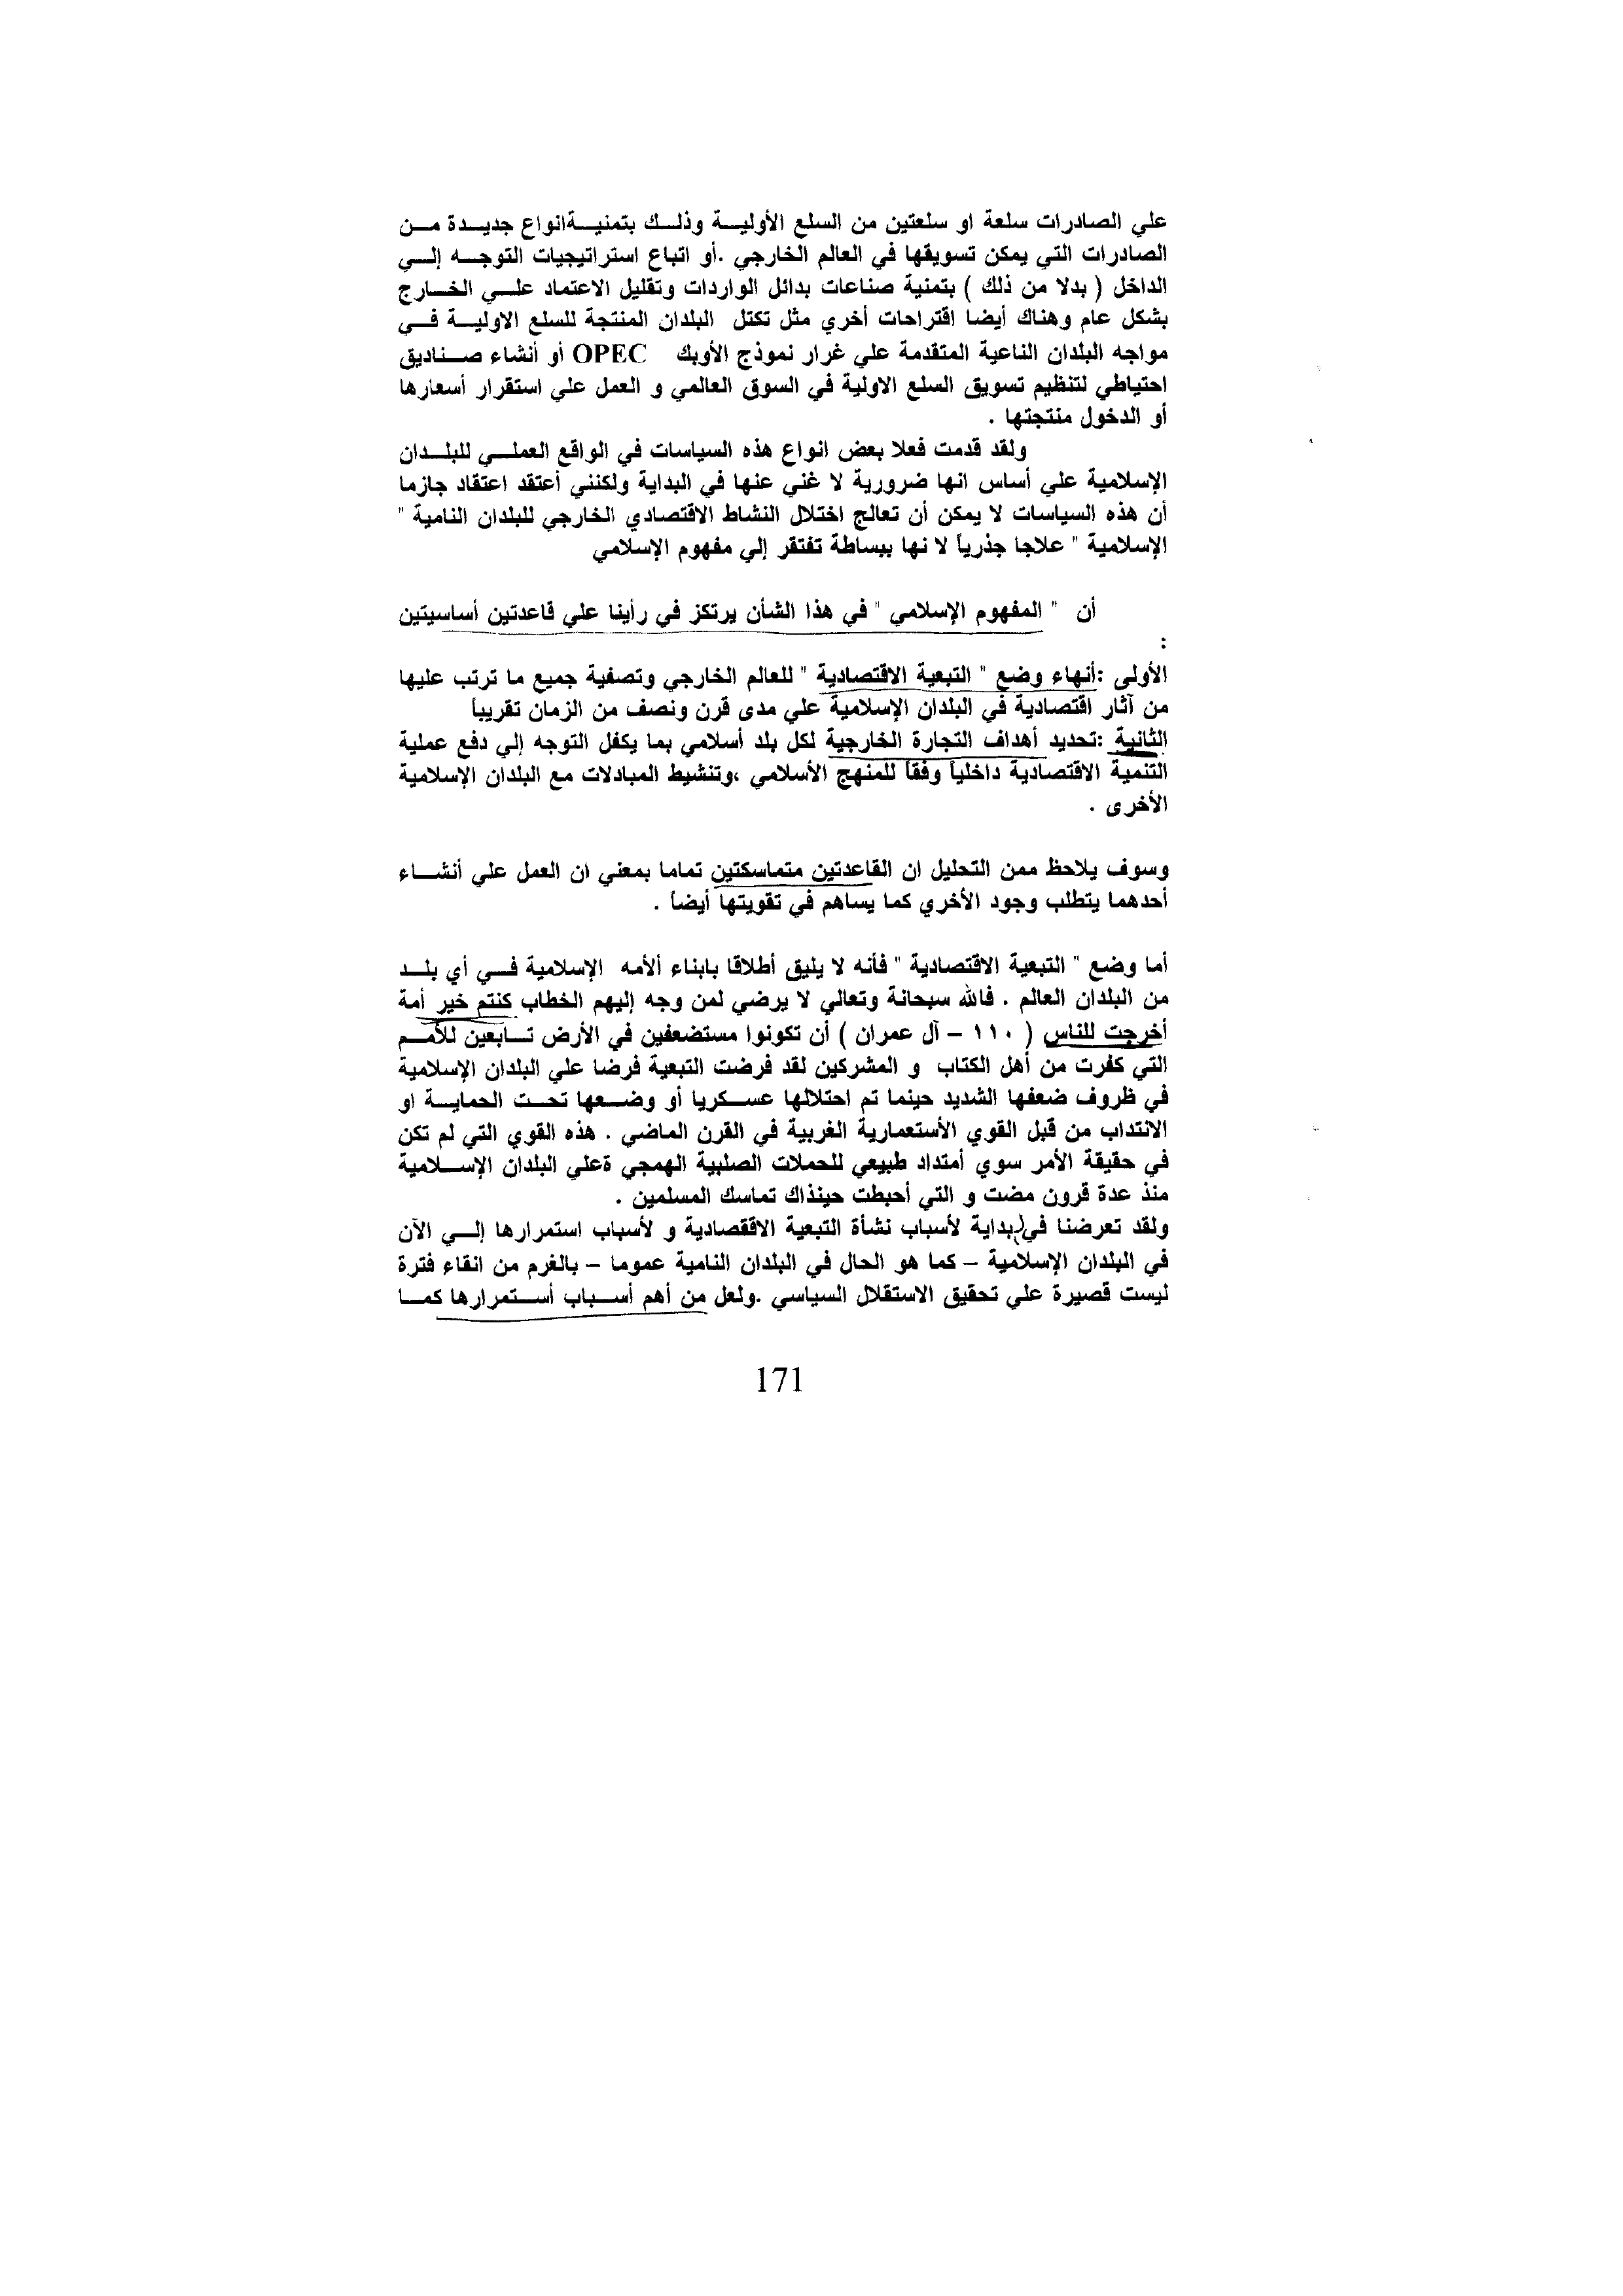 علي الصادرات سلعة او سلعتين من السلع الأولية وذلك بتمنيةانواع جديدة من
الصادرات التي يمكن تسويقها في العالم الخارجي .أو اتباع استراتيجيات التوجه إلي
الداخل ( بدلا من ذلك ) بتمنية صناعات بدائل الواردات وتقليل الاعتماد علي الخارج
بشكل عام وهناك أيضا اقتراحات أخري مثل تكتل البلدان المنتجة للسلع الاولية في
مواجه البلدان الناعية المتقدمة علي غرار نموذج الأوبك OPEC أو أنشاء صناديق
احتياطي لتنظيم تسويق السلع الاولية في السوق العالمي و العمل علي استقرار أسعارها
أو الدخول منتجتها .
ولقد قدمت فعلا بعض انواع هذه السياسات في الواقع العملي للبلدان
الإسلامية علي أساس انها ضرورية لا غني عنها في البداية ولكنني أعتقد اعتقاد جازما
أن هذه السياسات لا يمكن أن تعالج اختلال النشاط الاقتصادي الخارجي للبلدان النامية "
الإسلامية " علاجا جذرياً لا نها ببساطة تفتقر إلي مفهوم الإسلامي
أن " المفهوم الإسلامي " في هذا الشأن يرتكز في رأينا علي قاعدتين أساسيتين
:
الأولى :أنهاء وضع " التبعية الاقتصادية " للعالم الخارجي وتصفية جميع ما ترتب عليها
من آثار اقتصادية في البلدان الإسلامية علي مدى قرن ونصف من الزمان تقريباً
الثانية :تحديد أهداف التجارة الخارجية لكل بلد أسلامي بما يكفل التوجه إلي دفع عملية
التنمية الاقتصادية داخلياً وفقاً للمنهج الأسلامي ،وتنشيط المبادلات مع البلدان الإسلامية
الأخرى .
وسوف يلاحظ ممن التحليل ان القاعدتين متماسكتين تماما بمعني ان العمل علي أنشاء
أحدهما يتطلب وجود الأخري كما يساهم في تقويتها أيضاً .
أما وضع " التبعية الاقتصادية " فأنه لا يليق أطلاقا بابناء ألأمه الإسلامية في أي بلد
من البلدان العالم . فالله سبحانة وتعالي لا يرضي لمن وجه إليهم الخطاب كنتم خير أمة
أخرجت للناس ( ١١٠ – آل عمران ) أن تكونوا مستضعفين في الأرض تابعين للأمم
التي كفرت من أهل الكتاب و المشركين لقد فرضت التبعية فرضا علي البلدان الإسلامية
في ظروف ضعفها الشديد حينما تم احتلالها عسكريا أو وضعها تحت الحماية او
الانتداب من قبل القوي الأستعمارية الغربية في القرن الماضي . هذه القوي التي لم تكن
في حقيقة الأمر سوي أمتداد طبيعي للحملات الصلبية الهمجي ةعلي البلدان الإسلامية
منذ عدة قرون مضت و التي أحبطت حينذاك تماسك المسلمين .
ولقد تعرضنا في بداية لأسباب نشأة التبعية الاققصادية و لأسباب استمرارها إلي الآن
في البلدان الإسلامية – كما هو الحال في البلدان النامية عموما – بالغرم من انقاء فترة
ليست قصيرة علي تحقيق الاستقلال السياسي .ولعل من أهم أسباب أستمرارها كما
171